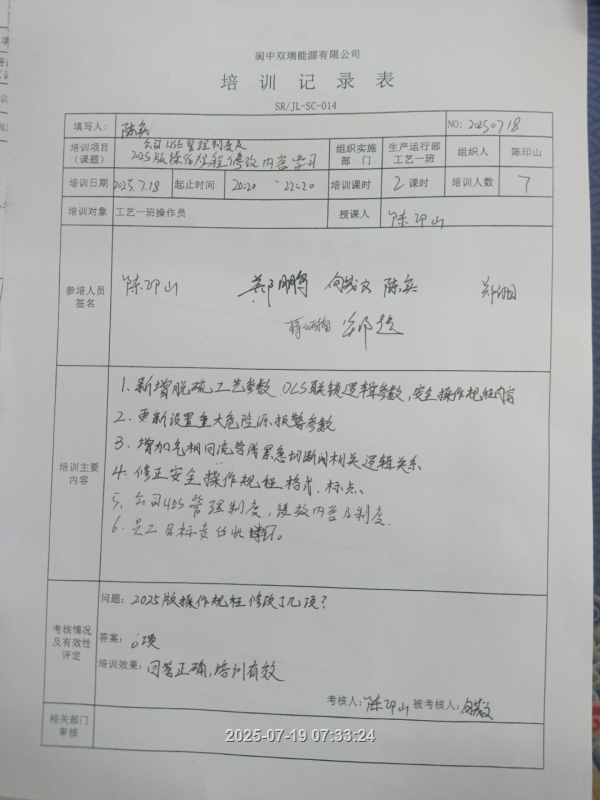 阆中双瑞能源有限公司
培训记录表
SR/JL-SC-014
填写人： 陈奕 NO: 20250718
培训项目（课题） 公司HSE管理制度及2025版操作规程修改内容学习 组织实施部门 生产运行部工艺一班 组织人 陈印山
培训日期 2025.7.18 起止时间 20:20-22:20 培训课时 2课时 培训人数 7
培训对象 工艺一班操作员 授课人 陈印山
参培人员签名 陈印山 郑鹏 陈奕
培训主要内容
1、新增脱硫工艺参数 DCS联锁逻辑参数，安全操作规程内容
2、更新设置重大危险源报警参数
3、增加气相回流管线紧急切断阀相关逻辑关系
4、修正安全操作规程格式、标点
5、公司HSE管理制度，绩效内容及制度.
6、员工目标责任状
考核情况及有效性评定
问题：2025版操作规程修改了几项？
答案：6项
培训效果：回答正确，培训有效
考核人：陈印山 被考核人：
相关部门审核
2025-07-19 07:33:24